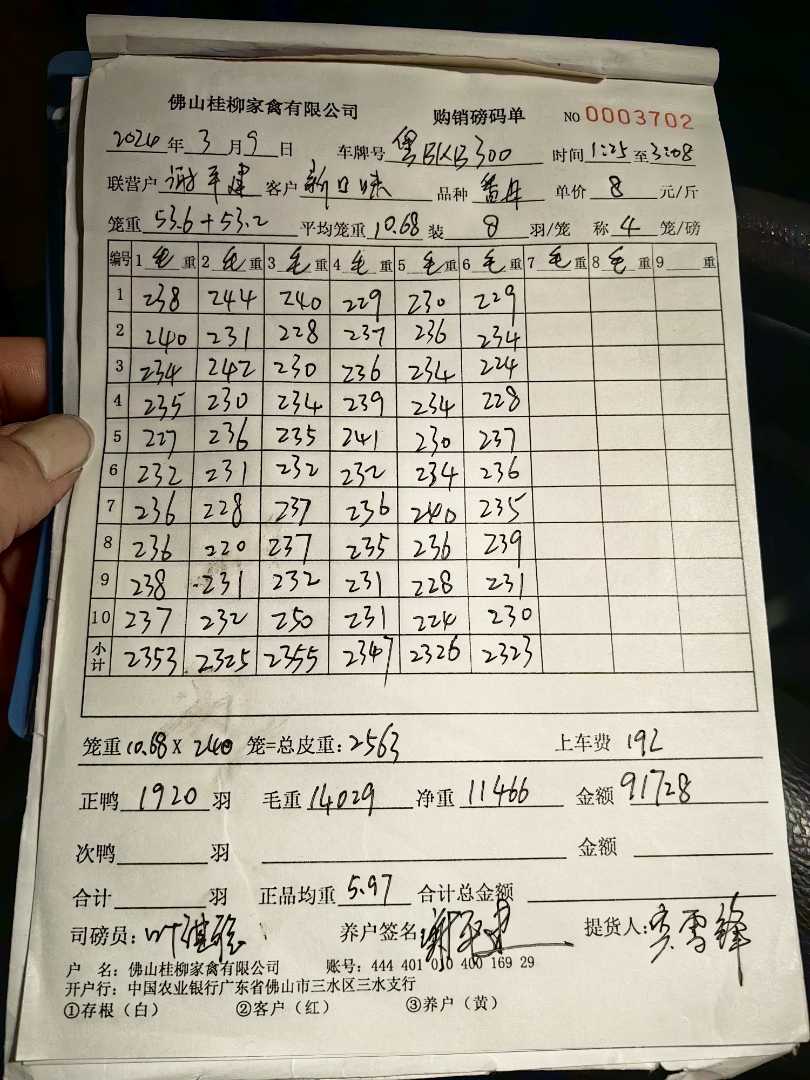 佛山桂柳家禽有限公司 购销磅码单 NO 0003702
2024年3月9日 车牌号 粤BKB300 时间 1:25至3:08
联营户 谢平建 客户 新口味 品种 单价 8 元/斤
笼重 53.6+53.2 平均笼重 10.68 装 8 羽/笼 称 4 笼/磅
编号 1毛重 2毛重 3毛重 4毛重 5毛重 6毛重 7毛重 8毛重 9 重
1 238 244 240 229 230 229
2 240 231 228 237 236 234
3 234 242 230 236 234 224
4 235 230 234 239 234 228
5 227 236 235 241 230 237
6 232 231 232 232 234 236
7 236 228 237 236 240 235
8 236 220 237 235 236 239
9 238 231 232 231 228 231
10 237 232 250 231 224 230
小计 2353 2325 2355 2347 2326 2323
笼重 10.68 X 240 笼=总皮重: 2563 上车费 192
正鸭 1920 羽 毛重 14029 净重 11466 金额 91728
次鸭 羽 金额
合计 羽 正品均重 5.97 合计总金额
司磅员: 养户签名: 谢平建 提货人:
户 名: 佛山桂柳家禽有限公司 账号: 444 401 010 400 169 29
开户行: 中国农业银行广东省佛山市三水区三水支行
①存根(白) ②客户(红) ③养户(黄)